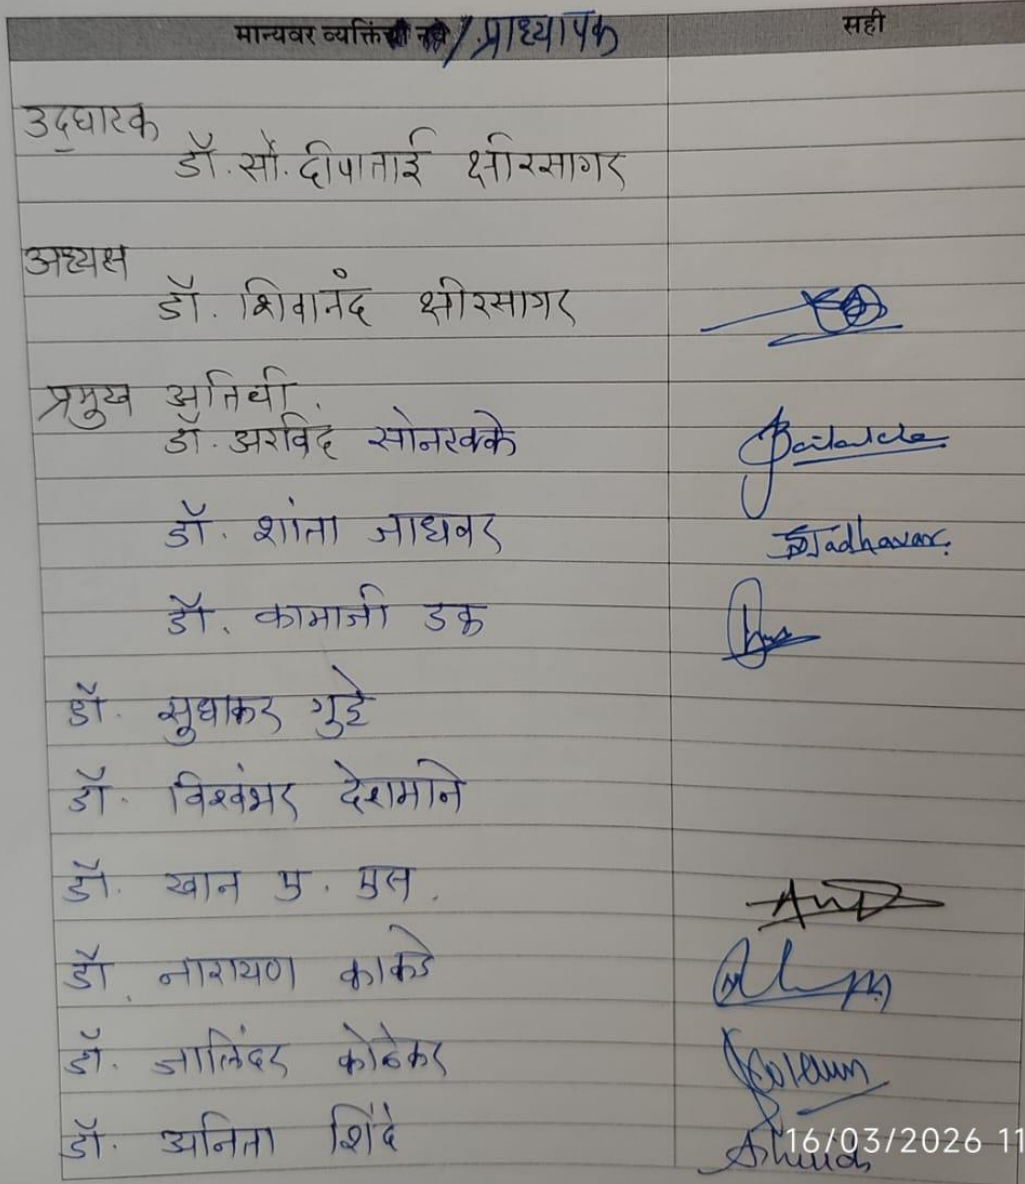 मान्यवर व्यक्तिंची नावे / प्राध्यापक सही
उद्घाटक
डॉ. सौ. दीपाताई क्षीरसागर
अध्यक्ष
डॉ. शिवानंद क्षीरसागर
प्रमुख अतिथी.
डॉ. अरविंद सोनटक्के
डॉ. शांता जाधवर Jadhavar.
डॉ. कामाजी डक
डॉ. सुधाकर गुट्टे
डॉ. विश्वंभर देशमाने
डॉ. खान ए. एस.
डॉ. नारायण काकडे
डॉ. जालिंदर कोळेकर
डॉ. अनिता शिंदे
16/03/2026 11